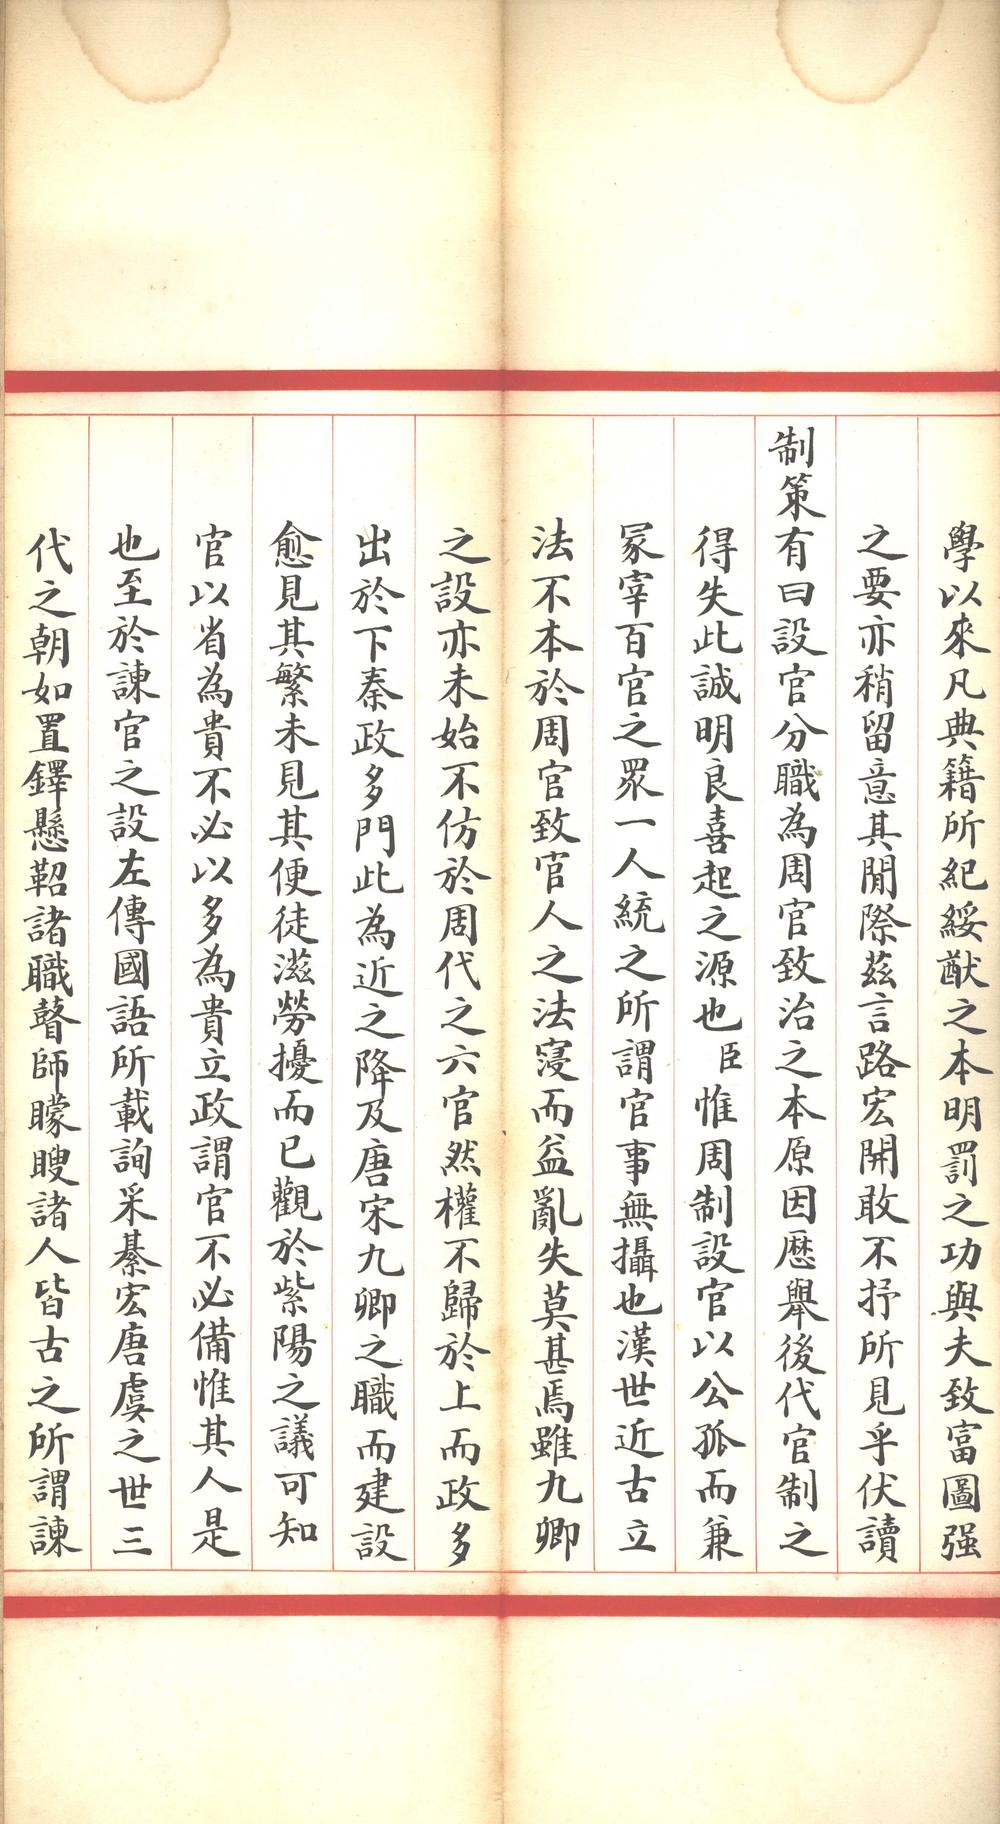 學以來凡典籍所紀綏猷之本明罰之功與夫致富圖强
之要亦稍留意其閒際茲言路宏開敢不抒所見乎伏讀
制策有曰設官分職為周官致治之本原因歷舉後代官制之
得失此誠明良喜起之源也臣惟周制設官以公孤而兼
冢宰百官之眾一人統之所謂官事無攝也漢世近古立
法不本於周官致官人之法寖而益亂失莫甚焉雖九卿
之設亦未始不仿於周代之六官然權不歸於上而政多
出於下秦政多門此為近之降及唐宋九卿之職而建設
愈見其繁未見其便徒滋勞擾而已觀於紫陽之議可知
官以省為貴不必以多為貴立政謂官不必備惟其人是
也至於諫官之設左傳國語所載詢采綦宏唐虞之世三
代之朝如置鐸懸鞀諸職瞽師矇瞍諸人皆古之所謂諫